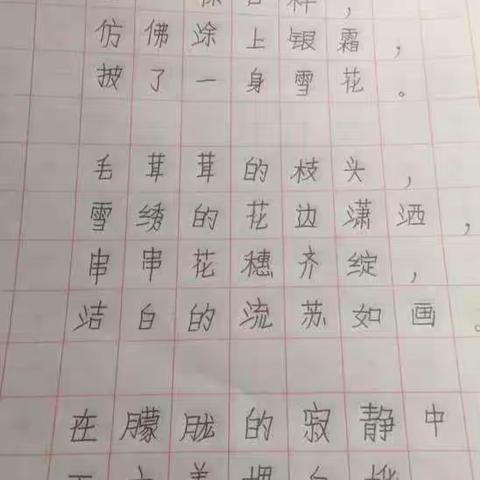 仿佛涂上银霜，
披了一身雪花。
毛茸茸的枝头，
雪绣的花边潇洒，
串串花穗齐绽，
洁白的流苏如画。
在朦胧的寂静中